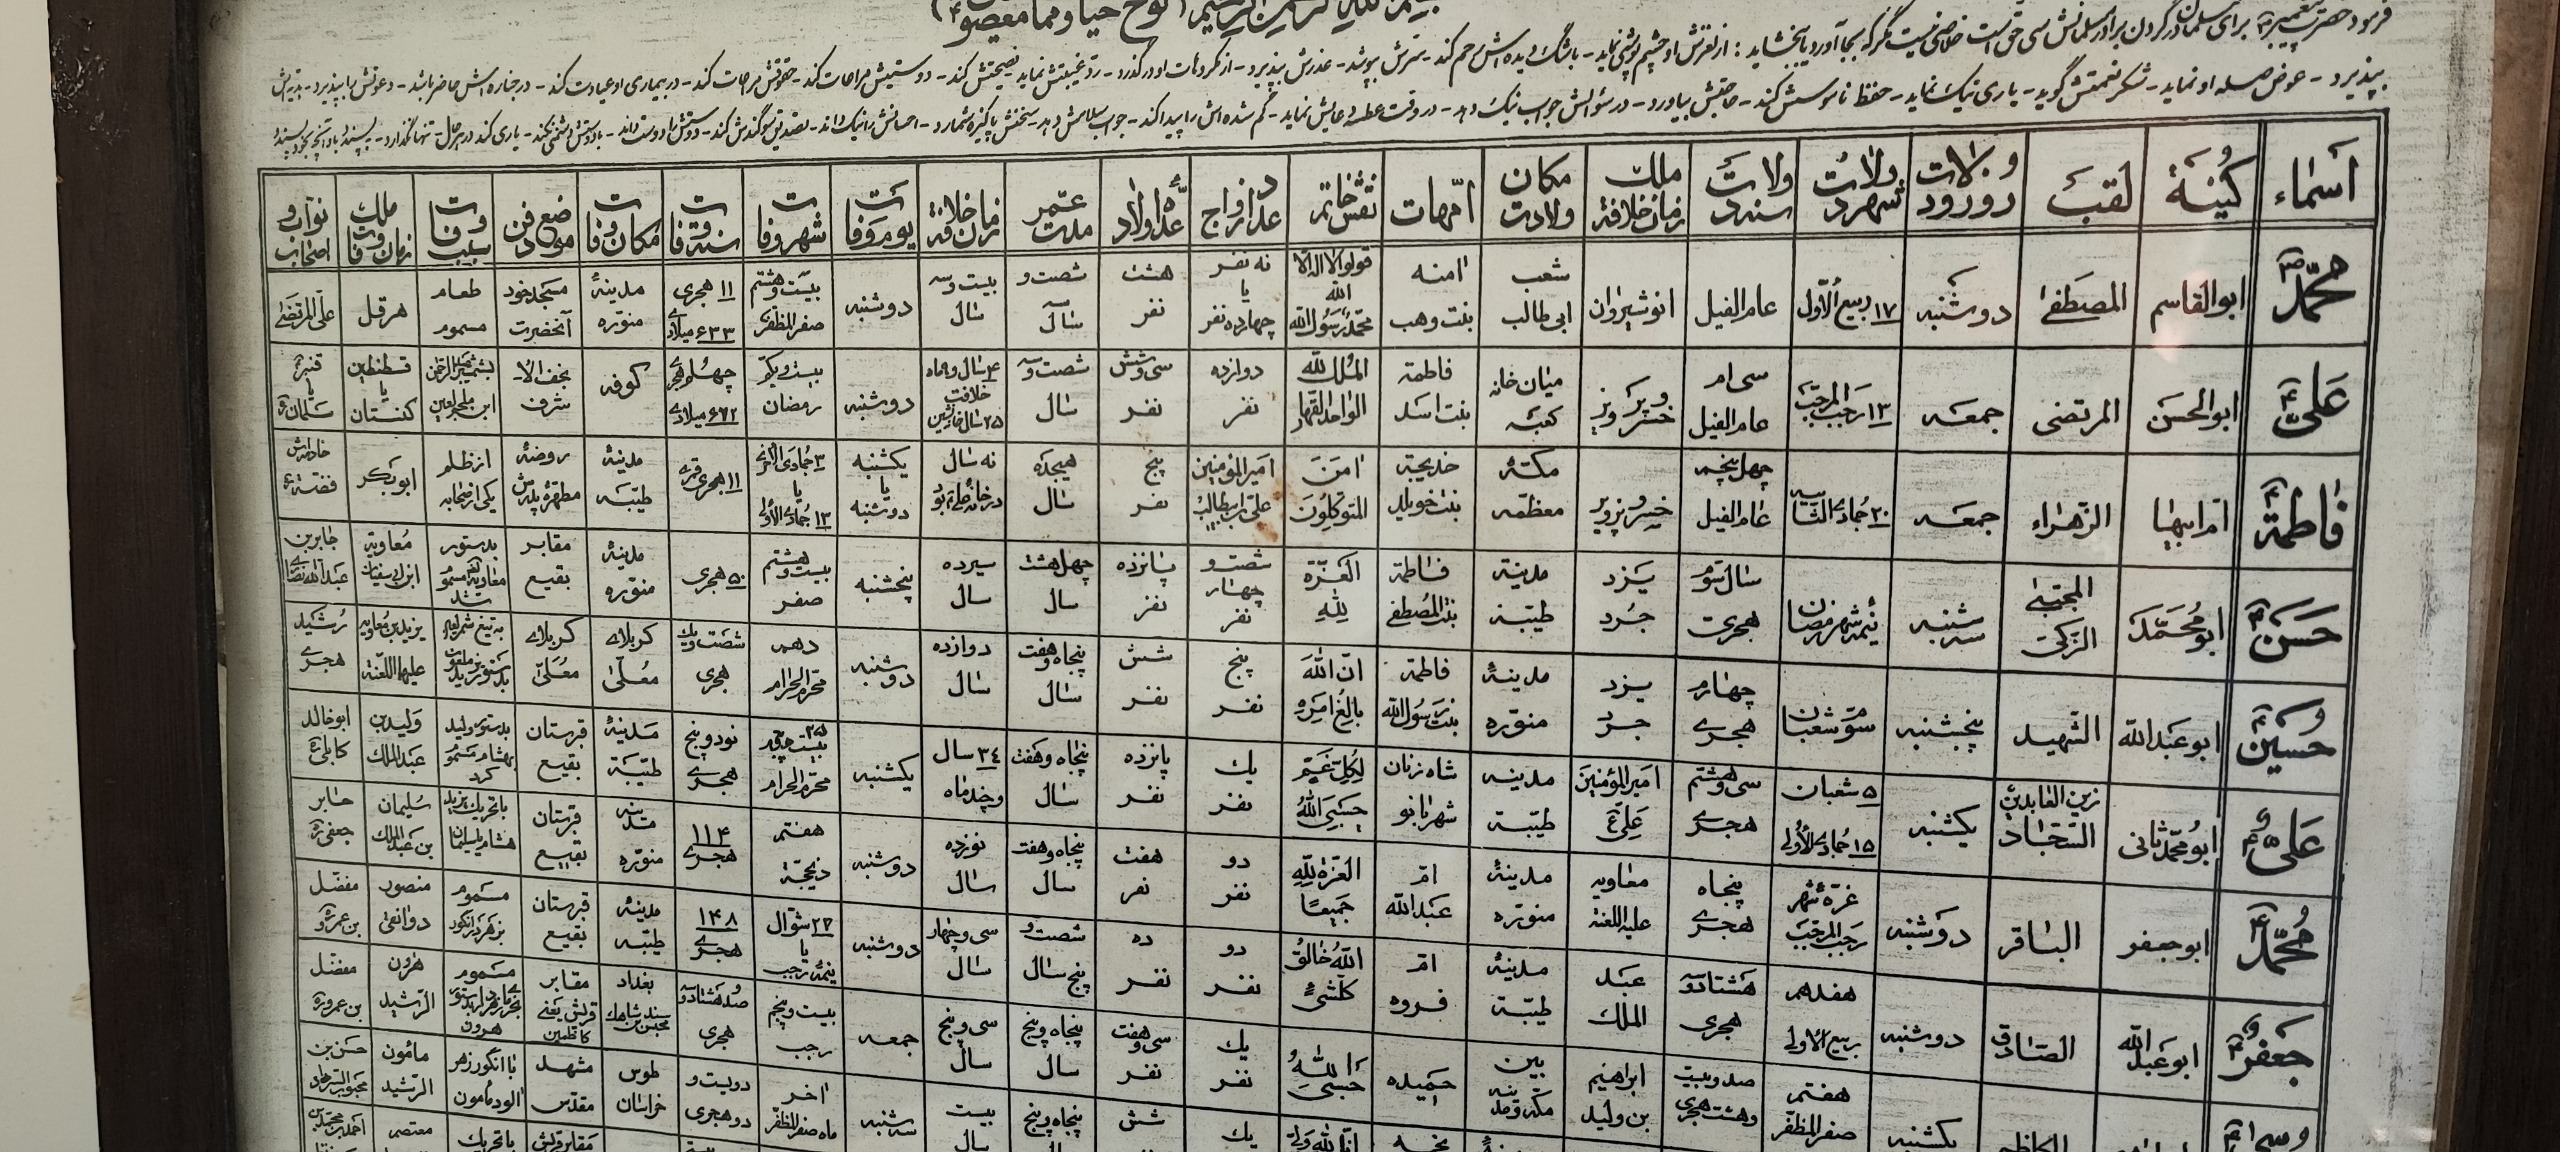 بسم الله الرحمن الرحیم (لوح حیا و مما معصوم)
فرمود حضرت پیغمبر برای مسلمان گردن برادر مسلمانش سی حق است خلاصی نیست مگر که بجا آورد یا ببخشاید : از لغزش او چشم پوشی نماید - باشگ دیده اش رحم کند - سترش بپوشد - عذرش بپذیرد - از مکروهات او درگذرد - رد غیبتش نماید - نصیحتش کند - دوستیش مراعات کند - حقوقش مراعات کند - در بیماری او عیادت کند - در جنازه اش حاضر باشد - دعوتش را بپذیرد - هدیه اش
بپذیرد - عوض صله او نماید - شکر نعمتش گوید - یاری نیک نماید - حفظ ناموسش کند - حاجتش بیاورد - در سئوالش جواب نیک دهد - در وقت عطسه دعایش نماید - گم شده اش را پیدا کند - جواب سلامش دهد - سخنش پاکیزه شمارد - احسانش را نیک داند - تصدیق سوگندش کند - دوستش را دوست داند - با دوستش دشمنی نکند - یاری کند در هر حال - تنها نگذارد
اسماء کنیة لقب روز ولادت شهر ولادت سنه ولادت ملک زمان خلافة مکان ولادت امّهات نقش خاتم عدد ازواج عدّه اولاد مدت عمر زمان خلافة یوم وفات شهر وفات سنه وفات مکان وفات موضع دفن سبب وفات ملک زمان وفات نوّاب و اصحاب
محمّد ابوالقاسم المصطفی دوشنبه ۱۷ ربیع الاوّل عام الفیل انوشیروان شعب ابی طالب امنه بنت وهب قولوا لا اله الا الله محمّد رسول الله نه نفر یا چهارده نفر هشت نفر شصت و سه سال بیست و سه سال دوشنبه بیست و هشتم صفر المظفر ۱۱ هجری ۶۳۳ میلادی مدینهٔ منوّره مسجد خود آنحضرت طعام مسموم هرقل علی المرتضی
علیّ ابوالحسن المرتضی جمعه ۱۳ رجب المرجّب سی ام عام الفیل خسرو پرویز میان خانه کعبه فاطمة بنت اسد الملک لله الواحد القهار دوازده نفر سی و شش نفر شصت و سه سال ۴ سال و ماه خلافت ۲۵ سال دوشنبه بیست و یکم رمضان چهلم هجری ۶۷۲ میلادی کوفه نجف الاشرف بشمشیر عبدالرحمن ابن ملجم لعین قسطنطین یا کنستان قنبر یا سلمان
فاطمة ام ابیها الزهراء جمعه ۲۰ جمادی الثانیه چهل پنجم عام الفیل خسرو پرویز مکهٔ معظمه خدیجة بنت خویلد امن المتوکلون امیر المؤمنین علی ابن ابیطالب پنج نفر هیجده سال نه سال در خانه علی بود یکشنبه یا دوشنبه ۳ جمادی الاخر یا ۱۳ جمادی الأولی ۱۱ هجری قمری مدینهٔ طیبّه روضهٔ مطهره پدرش از ظلم یکی از صحابه ابوبکر خادمه اش فضّه
حسن ابومحمّد المجتبی الزکی سه شنبه نیمه شهر رمضان سال سوّم هجرت یزد جرد مدینة طیبة فاطمة بنت المصطفی العزّة لله شصت و چهار نفر پانزده نفر چهل هشت سال سیزده سال پنجشنبه بیست و هشتم صفر ۵۰ هجری مدینهٔ منوّره مقابر بقیع بدستور معاویه مسموم شد معاویة ابن ابی سفیان جابر بن عبدالله انصاری
و حسین ابو عبدالله الشهید پنجشنبه سوّم شعبان چهارم هجری یزد جرد مدینهٔ منوّره فاطمة بنت رسول الله انّ الله بالغ امره پنج نفر شش نفر پنجاه و هفت سال دوازده سال دوشنبه دهم محرّم الحرام شصت و یک هجری کربلای معلّی کربلای معلّی به تیغ شمر لعین بدستور یزید ملعون یزید بن معاویه علیهما اللعنة رشید هجری
علی ابومحمّد ثانی زین العابدین السّجاد یکشنبه ۵ شعبان ۱۵ جمادی الأولی سی و هشتم هجری امیر المؤمنین علیّ مدینه طیبّة شاه زنان شهربانو لکلّ غمّ حسبی الله یک نفر پانزده نفر پنجاه و هفت سال ۳۴ سال و چند ماه یکشنبه بیست و پنجم ۲۵ محرّم الحرام نود و پنج هجری مدینهٔ طیّبة قبرستان بقیع بدستور ولید هشام مسموم کرد ولید بن عبدالملک ابو خالد کابلی
محمّد ابو جعفر الباقر دوشنبه غرّهٔ شهر رجب المرجّب پنجاه هجری معاویه علیه اللعنة مدینهٔ منوّره امّ عبدالله العزّة لله جمیعاً دو نفر هفت نفر پنجاه و هفت سال نوزده سال دوشنبه هفتم ذیحجّة ۱۱۴ هجری مدینه منوّره قبرستان بقیع باتحریک یزید هشام سلیمان سلیمان بن عبدالملک جابر جعفی
و جعفر ابو عبدالله الصّادق دوشنبه هفدهم ربیع الاولی هشتاد و سه هجری عبد الملک مدینهٔ طیّبة امّ فروه الله خالق کلّ شیء دو نفر ده نفر شصت و پنج سال سی و چهار سال دوشنبه ۲۳ شوّال یا نیمهٔ رجب ۱۴۸ هجری مدینهٔ طیّبه قبرستان بقیع مسموم بزهر در انگور منصور دوانقی مفضّل بن عمر
الکاظم یکشنبه هفتم صفر المظفّر صد و بیست و هشت هجری ابراهیم بن ولید بین مکّه و مدینه حمیده حسبی الله یک نفر سی و هفت نفر پنجاه و پنج سال سی و پنج سال جمعه بیست و پنج رجب صد هشتاد و سه هجری بغداد سندی شاهک مقابر قریش یعنی کاظمین هرون هرون الرّشید مفضّل بن عمرو
یک شش پنجاه و پنج بیست سال سه شنبه اخر ماه صفر المظفّر دویست و دو هجری طوس خراسان مشهد مقدّس با انگور زهر الود مأمون مأمون الرّشید حسن بن محبوب
مقابر قریش باتحریک معتصم